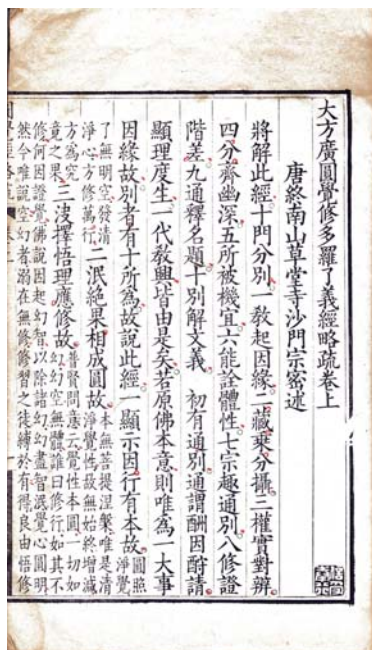 大方廣圓覺修多羅了義經略疏卷上
唐終南山草堂寺沙門宗密述
將解此經十門分別一教起因緣二藏乘分攝三權實對辨
四分齊幽深五所被機宜六能詮體性七宗趣通別八修證
階差九通釋名題十別解文義初有通別通謂酬因酧請
顯理度生一代教興皆由是矣若原佛本意則唯為一大事
因緣故別者有十所為故說此經一顯示因行有本故圓照淨覺
了無明空發清淨心方修萬行二泯絕果相成圓故本無菩提涅槃唯是清淨覺性故無始終增減
方為究竟之果三決擇悟理應修故普賢問意云覺性本圓一切如幻幻空無體誰曰修行如其不
修何因證覺佛說因起幻智以除諸幻幻盡智泯覺心圓明
然今唯說空幻者溺在無修修習之徒縛於有得良由悟修